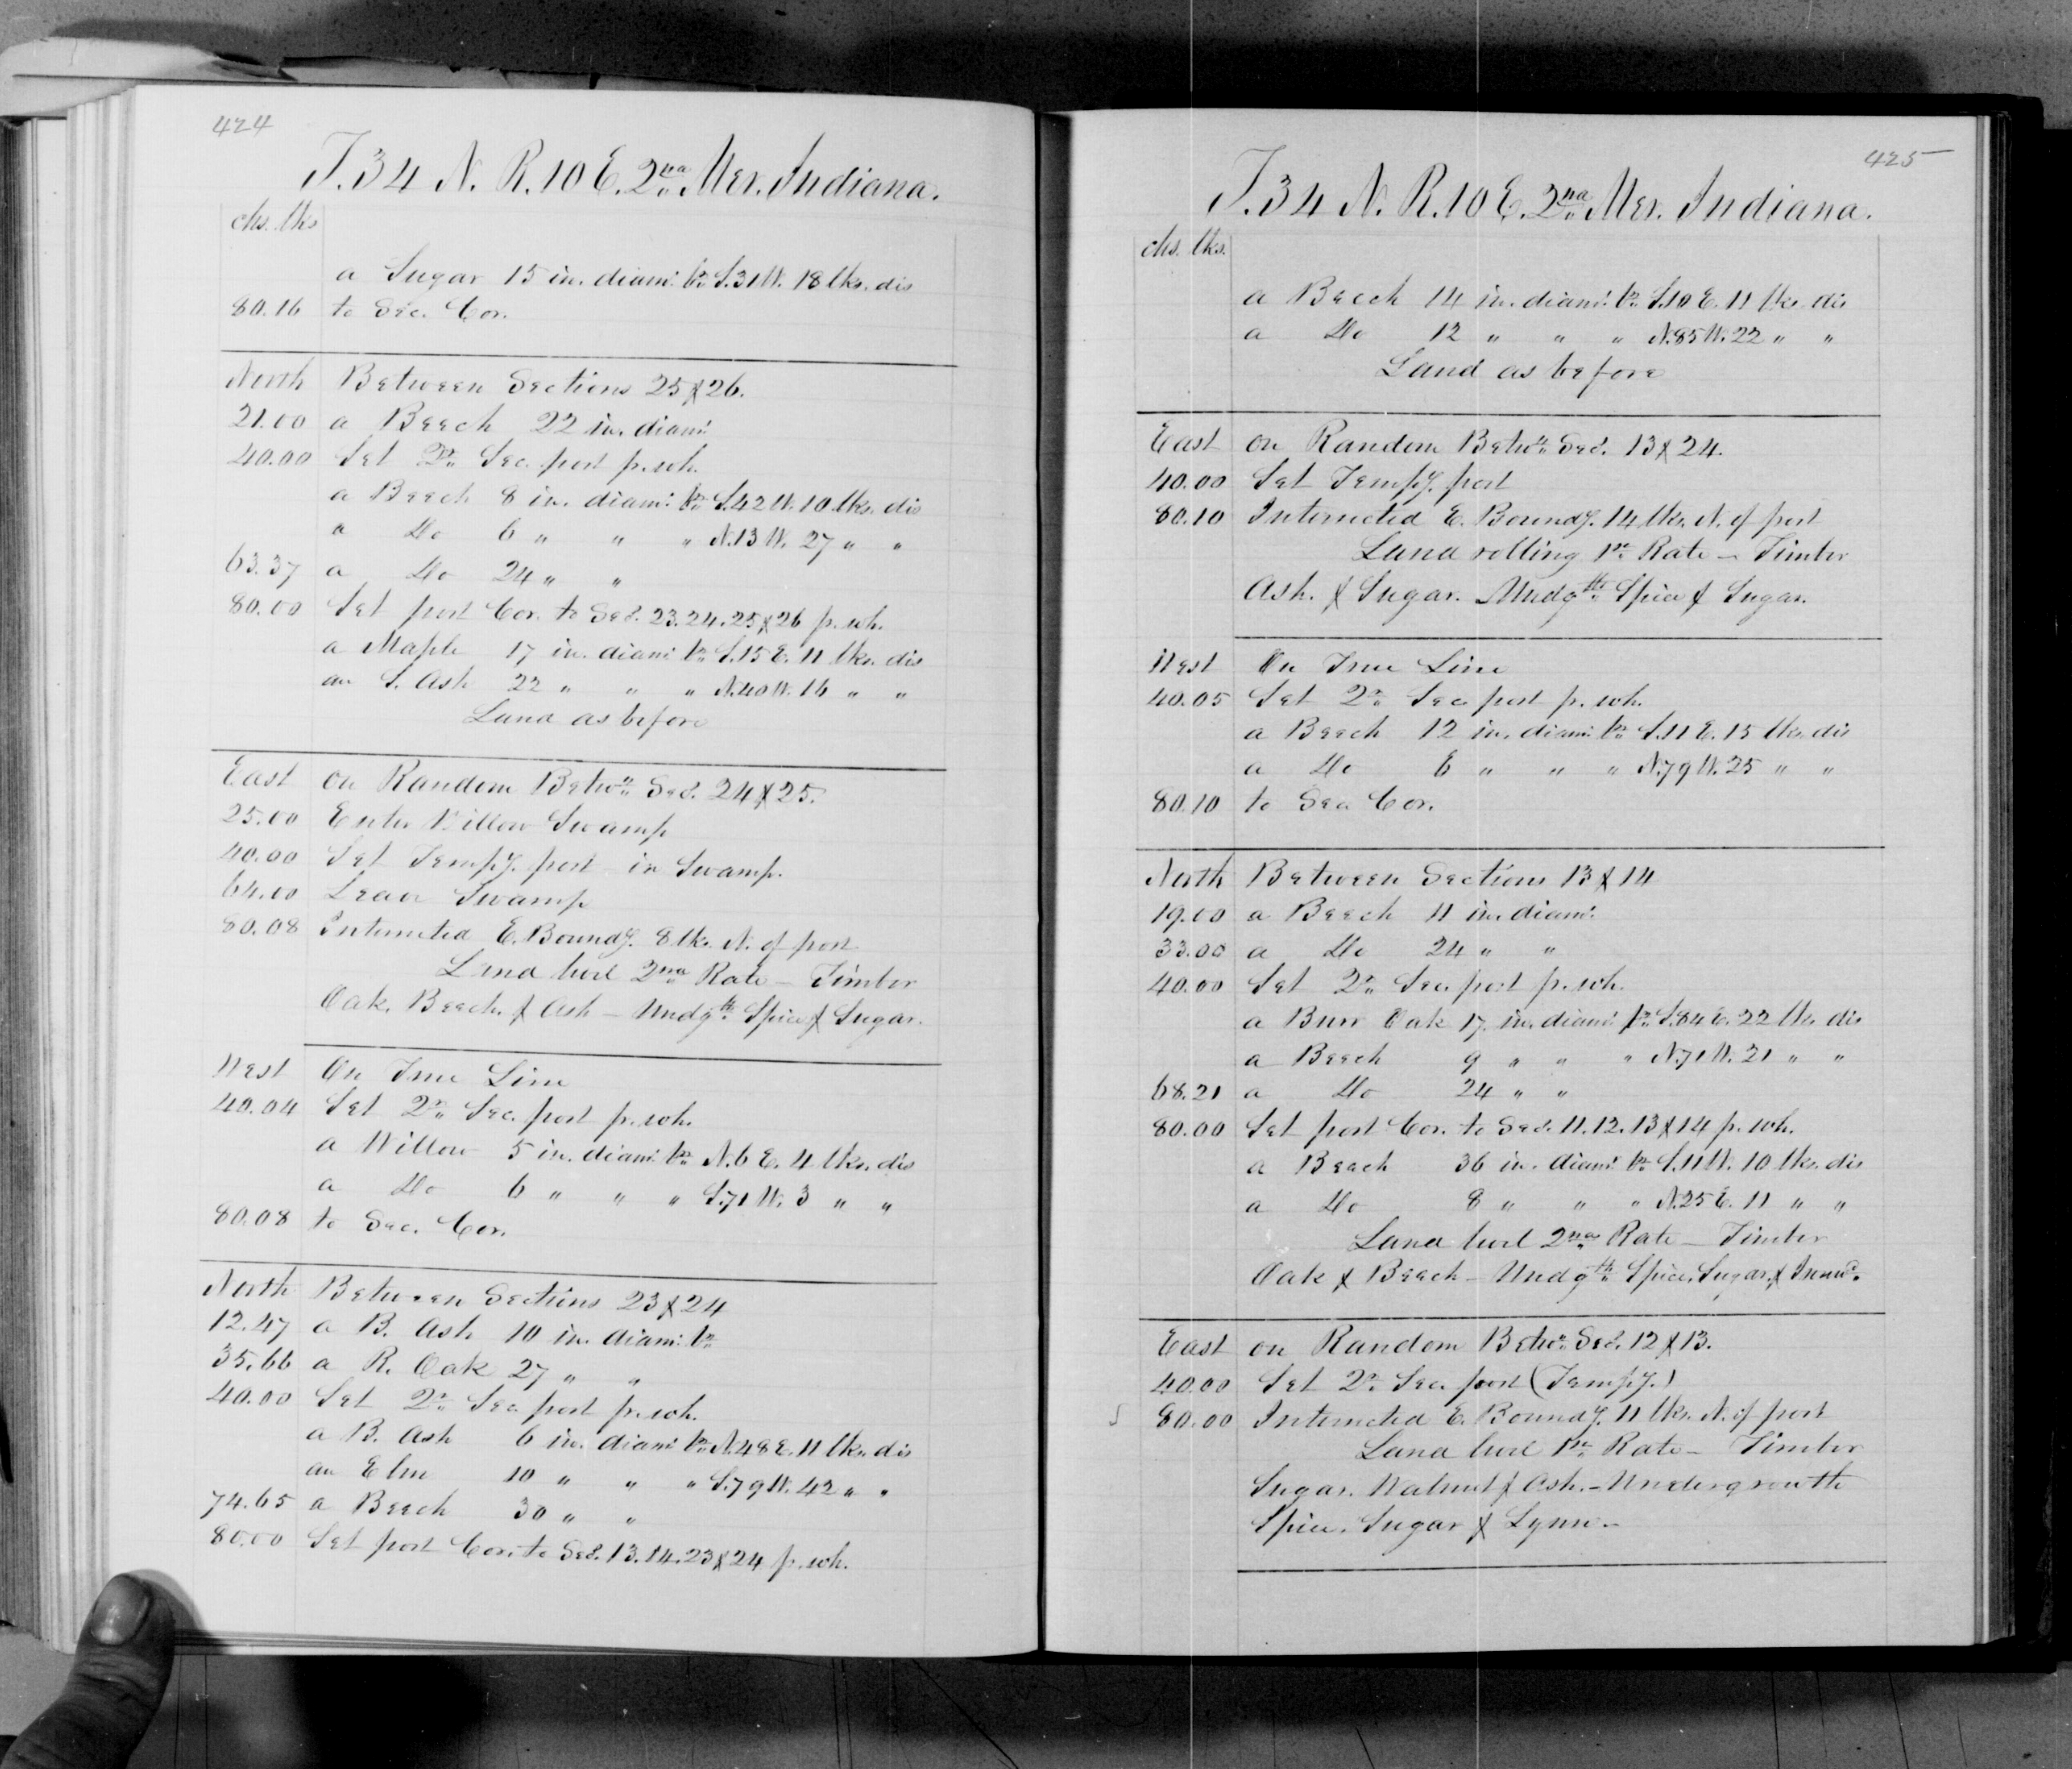 424
T. 34 N. R. 10 E. 2nd Mer. Indiana.
chs. lks
a Sugar 15 in. diam. br. S. 31 W. 18 lks. dis
80.16 to Sec. Cor.
North Between Sections 25 & 26.
21.00 a Beech 22 in. diam.
40.00 Set qr. Sec. post p. wh.
a Beech 8 in. diam. br. S. 42 W. 10 lks. dis
a do 6 " " " N. 13 W. 27 " "
63.37 a do 24 " "
80.00 Set post Cor. to Secs. 23. 24. 25 & 26 p. wh.
a Maple 17 in. diam. br. S. 15 E. 11 lks. dis
an S. Ash 22 " " " N. 40 W. 16 " "
Land as before
East on Random Betwn. Secs. 24 & 25.
25.00 Enter Willow Swamp
40.00 Set Tempy. post in Swamp.
64.00 Leave Swamp
80.08 Intersected E. Boundy. 8 lks. N. of post
Land level 2nd Rate – Timber
Oak, Beech, & Ash – Undgth. Spice & Sugar.
West On True Line
40.04 Set qr. Sec. post p. wh.
a Willow 5 in. diam. br. N. 6 E. 4 lks. dis
a do 6 " " " S. 71 W. 3 " "
80.08 to Sec. Cor.
North Between Sections 23 & 24
12.47 a B. Ash 10 in. diam. br.
35.66 a R. Oak 27 " "
40.00 Set qr. Sec. post p. wh.
a B. Ash 6 in. diam. br. N. 48 E. 11 lks. dis
an Elm 10 " " " S. 79 W. 42 " "
74.65 a Beech 30 " "
80.00 Set post Cor. to Secs. 13. 14. 23 & 24 p. wh.
425
T. 34 N. R. 10 E. 2nd Mer. Indiana.
chs. lks.
a Beech 14 in. diam. br. S. 10 E. 11 lks. dis
a do 12 " " " N. 85 W. 22 " "
Land as before
East on Random Betwn. Secs. 13 & 24.
40.00 Set Tempy. post
80.10 Intersected E. Boundy. 14 lks. N. of post
Land rolling 1st. Rate – Timber
Ash. & Sugar. Undgth. Spice & Sugar.
West On True Line
40.05 Set qr. Sec. post p. wh.
a Beech 12 in. diam. br. S. 11 E. 15 lks. dis
a do 6 " " " N. 79 W. 25 " "
80.10 to Sec Cor.
North Between Sections 13 & 14
19.00 a Beech 11 in. diam.
33.00 a do 24 " "
40.00 Set qr. Sec. post p. wh.
a Burr Oak 17 in. diam. br. S. 84 E. 22 lks dis
a Beech 9 " " " N. 71 W. 21 " "
68.21 a do 24 " "
80.00 Set post Cor. to Secs. 11. 12. 13 & 14 p. wh.
a Beech 36 in. diam. br. S. 11 W. 10 lks. dis
a do 8 " " " N. 25 E. 11 " "
Land level 2nd Rate – Timber
Oak & Beech – Undgth. Spice, Sugar, &
East on Random Betwn. Secs. 12 & 13.
40.00 Set qr. Sec. post (Tempy.)
80.00 Intersected E. Boundy. 11 lks. N. of post
Land level 1st. Rate – Timber
Sugar. Walnut & Ash. – Undergrowth
Spice, Sugar & Lynn –